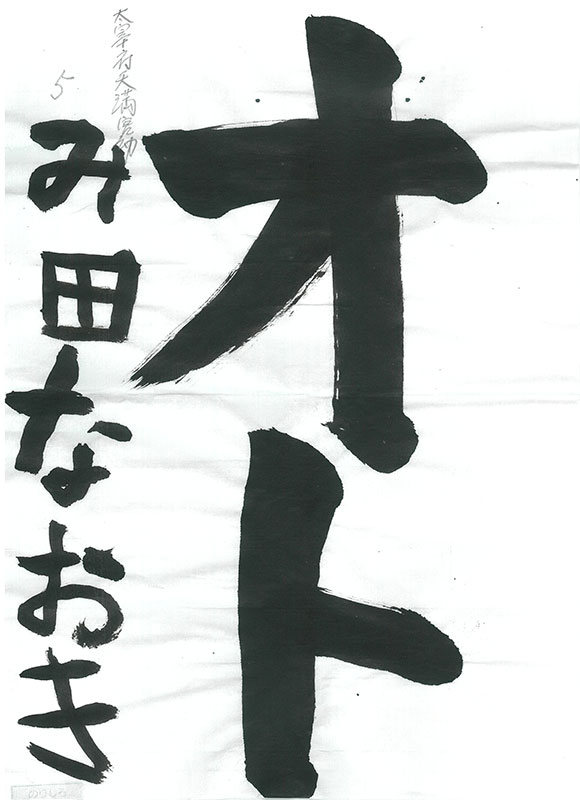 オト
み田なおき
太宰府天満宮幼
5
のりしろ